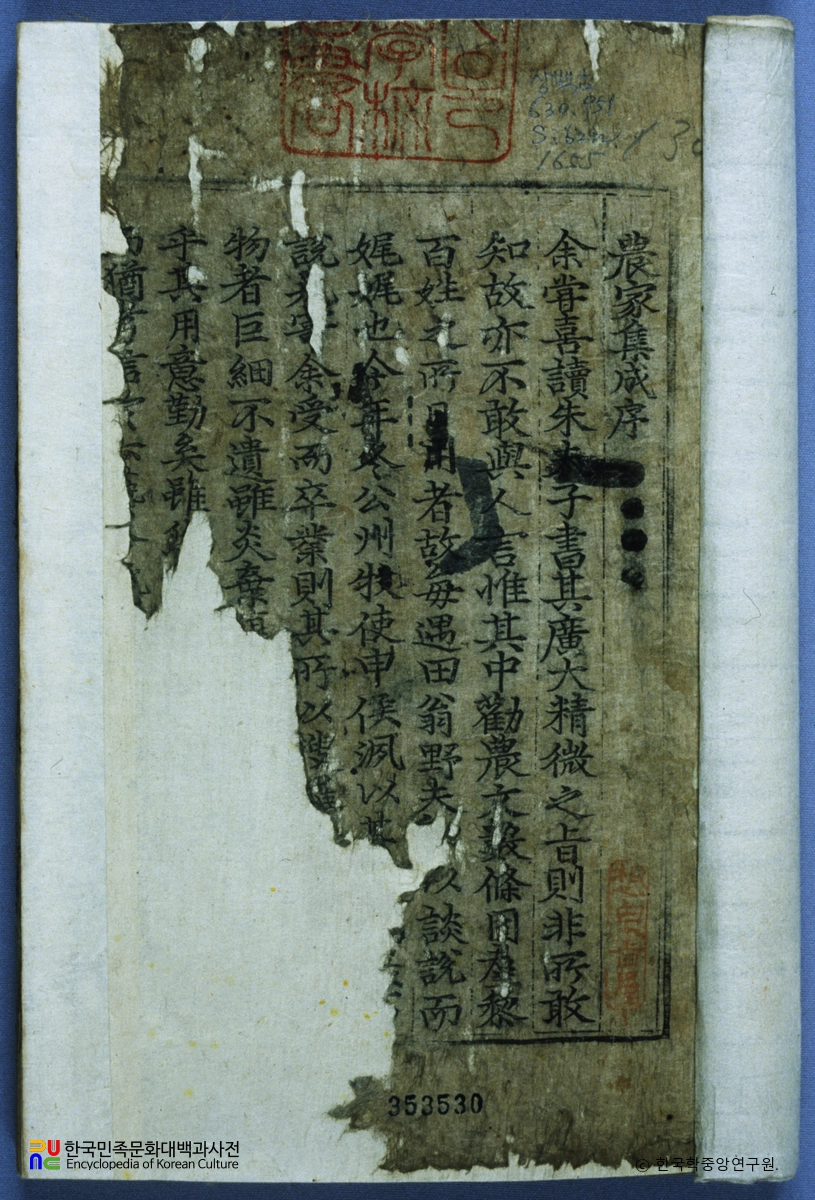 農家集成序
余嘗喜讀朱夫子書其廣大精微之旨則非所敢
知故亦不敢與人言惟其中勸農文數條固羣黎
百姓之所日用者故每遇田翁野夫以談說而
娓娓也今年冬公州牧使申侯洬以其
說見寄余受而卒業則其所以
物者巨細不遺雖炎棄
乎其用意勤矣雖
猶
상백古
630.951
1655
353530
한국민족문화대백과사전
Encyclopedia of Korean Culture
© 한국학중앙연구원.